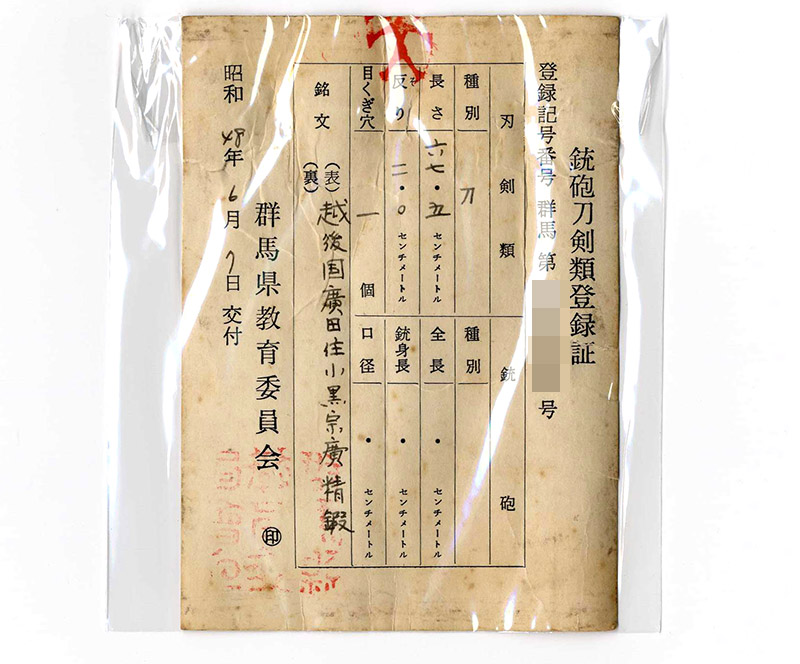 銃砲刀剣類登録証
登録記号番号 群馬 第 号
刃剣類
種別 刀
長さ 六七・五 センチメートル
反り 二・〇 センチメートル
目くぎ穴 一 個
銃砲
種別
全長 ・ センチメートル
銃身長 ・ センチメートル
口径 ・ センチメートル
銘文
(表) 越後国廣田住小黒宗廣精鍛
(裏)
群馬県教育委員会 ㊞
昭和48年6月7日 交付